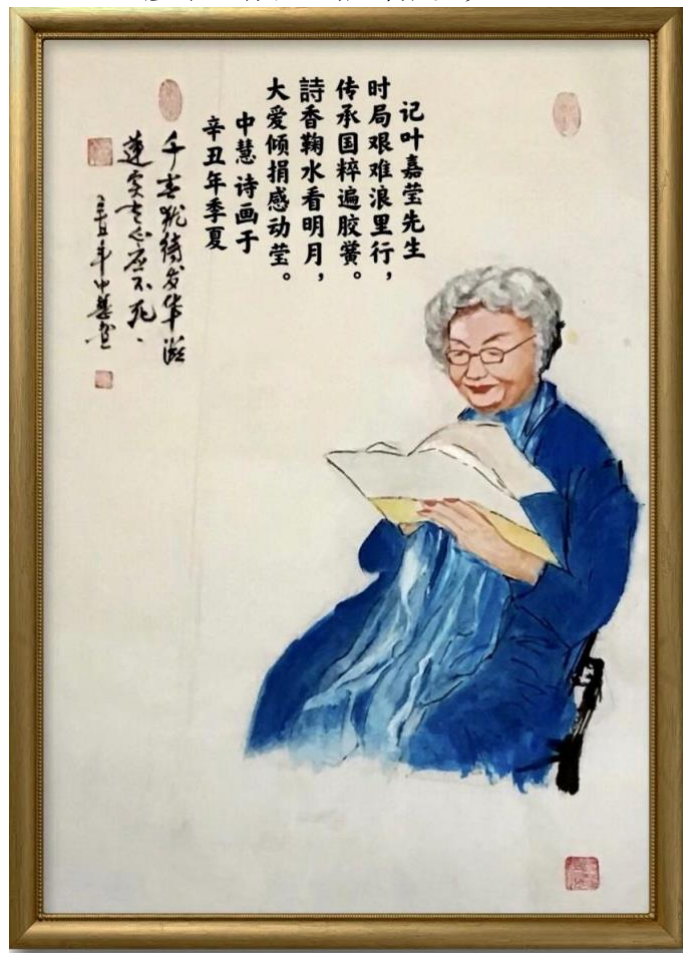 记叶嘉莹先生
时局艰难浪里行，
传承国粹遍胶黉。
詩香鞠水看明月，
大爱倾捐感动莹。
中慧 诗画于
辛丑年季夏
千春犹待发华滋
莲实有心应不死、
辛丑年中慧画